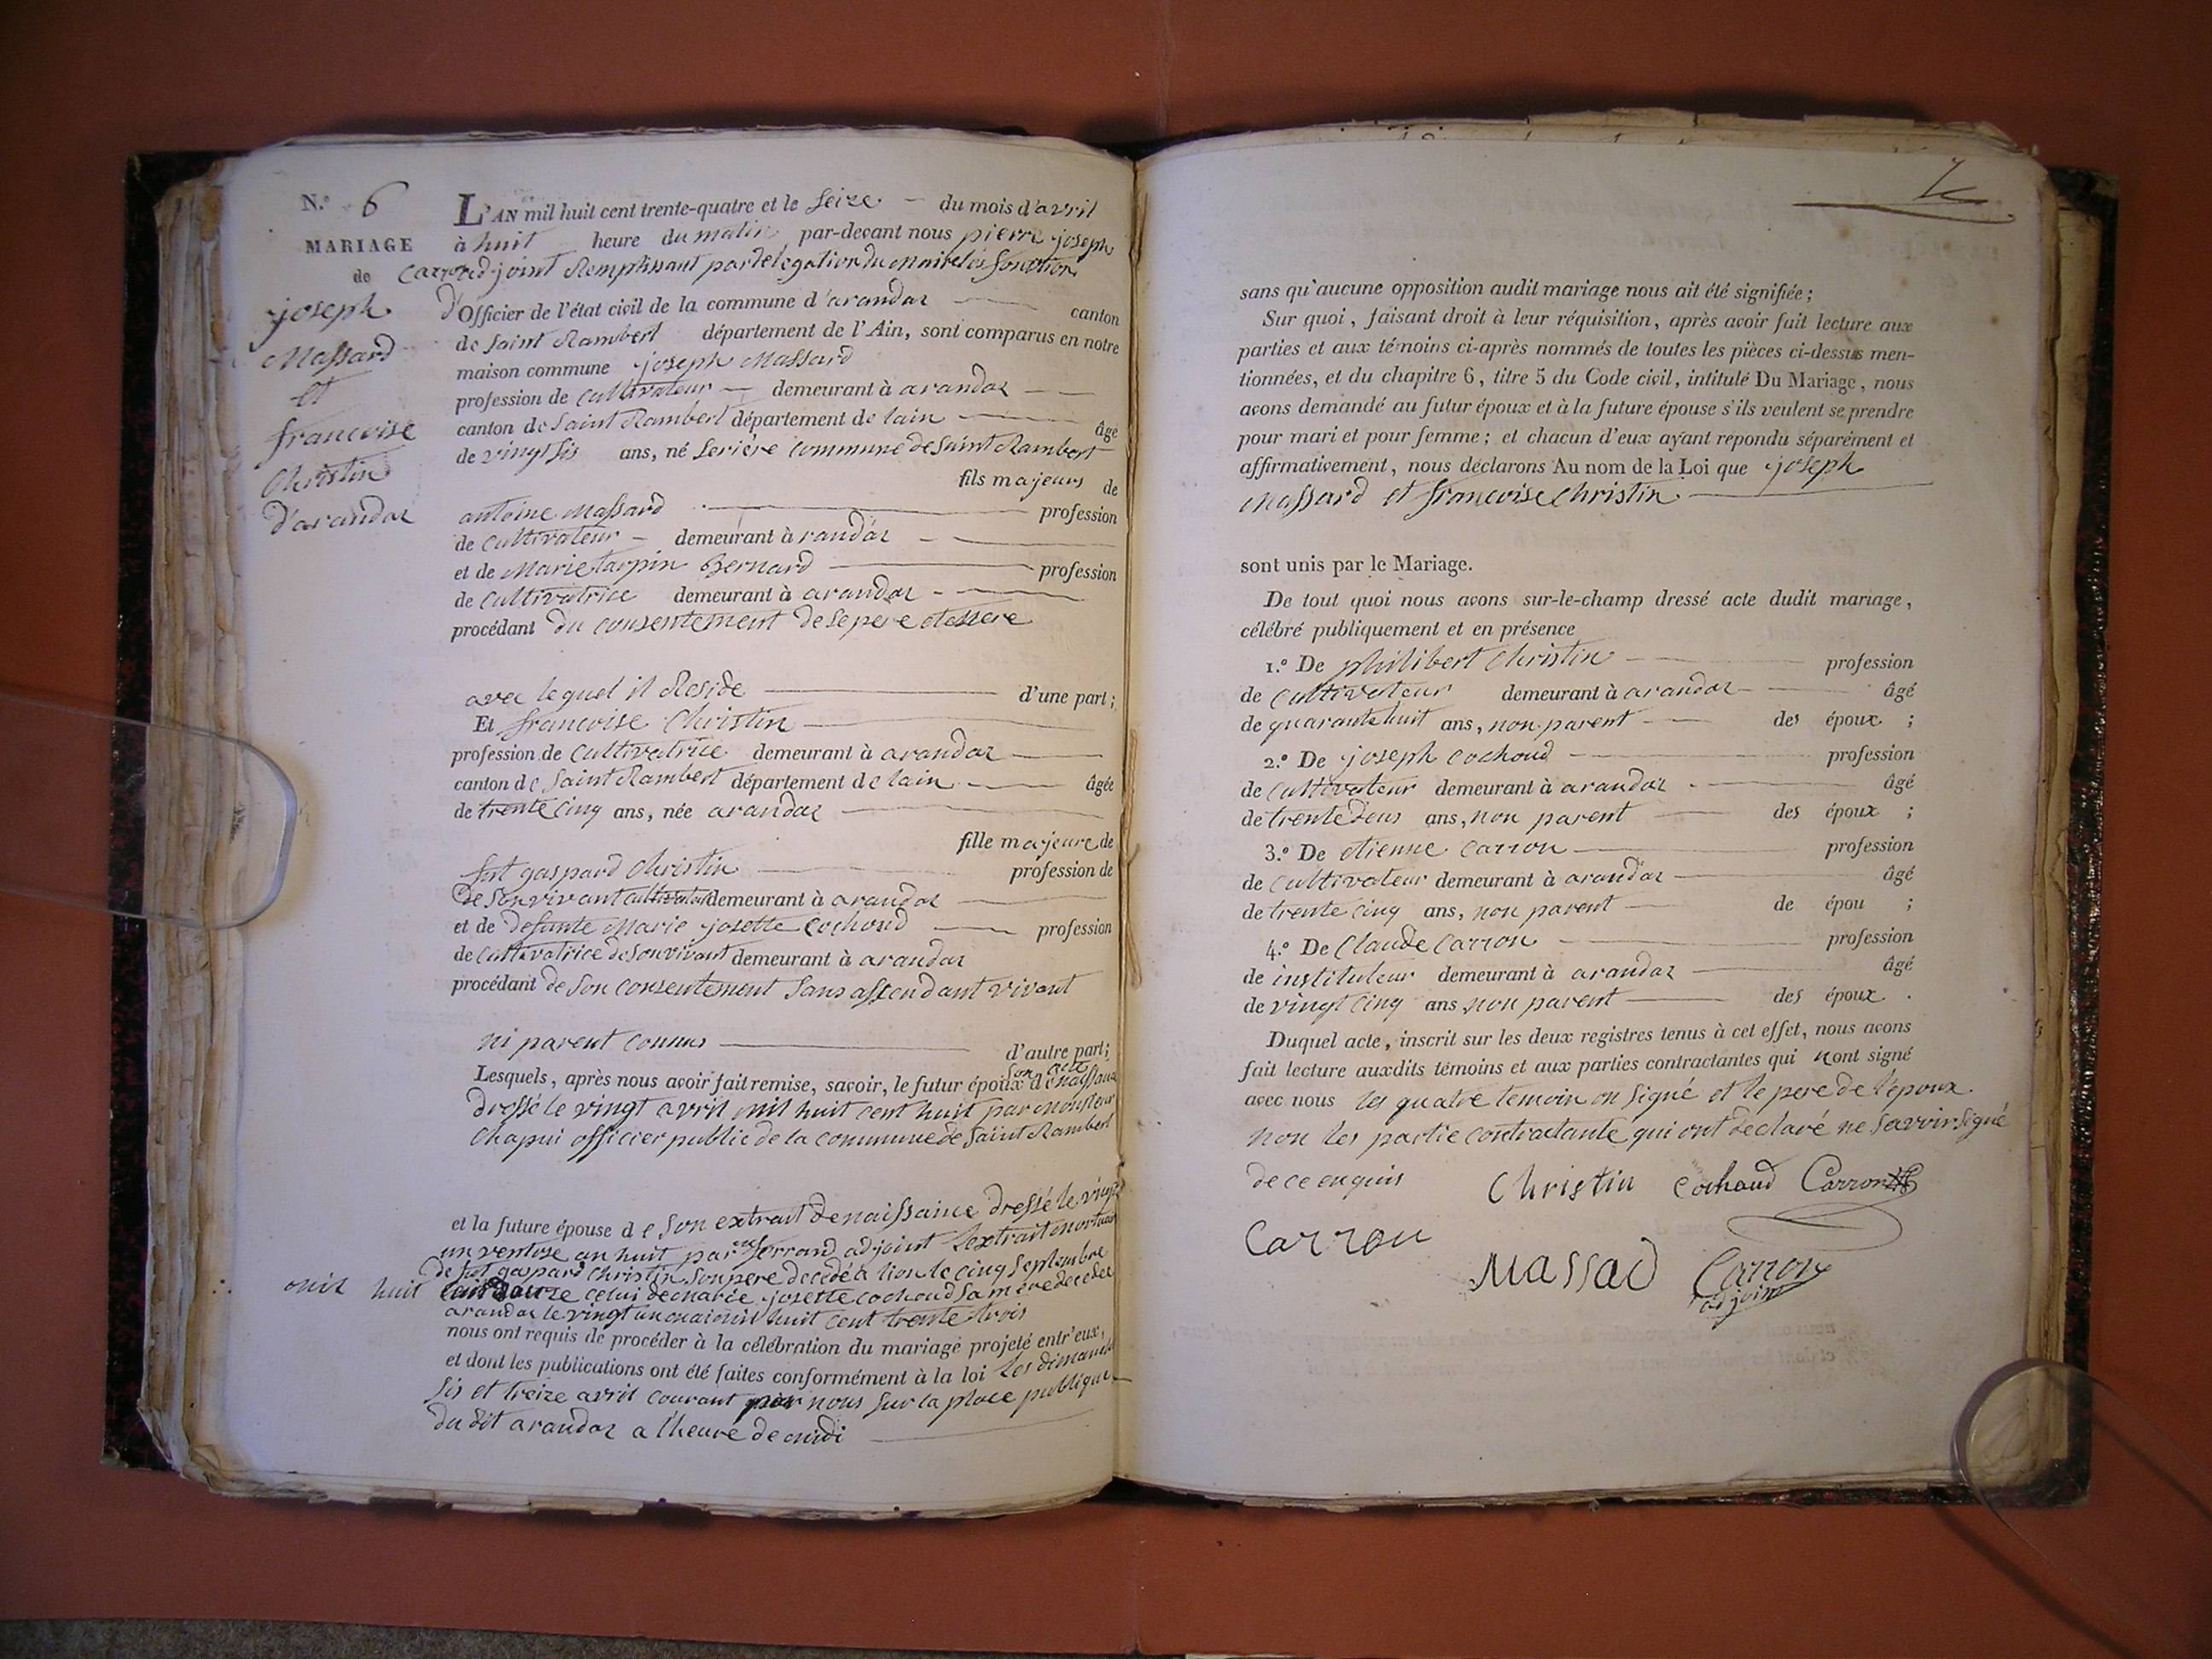 N.° 6
MARIAGE
de
joseph
Massard
et
francoise
Christin
d'arandas
L'AN mil huit cent trente-quatre et le seize du mois d'avril
à huit heure du matin par-devant nous pierre joseph
Carron adjoint Remplissant par délégation du Maire les fonction
d'Officier de l'état civil de la commune d'arandas canton
de Saint Rambert département de l'Ain, sont comparus en notre
maison commune joseph Massard
profession de cultivateur demeurant à arandas
canton de Saint Rambert département de lain âgé
de vingt sis ans, né Serière commune de Saint Rambert
fils majeurs de
antoine Massard profession
de cultivateur demeurant à randas
et de Marie tarpin Bernard profession
de cultivatrice demeurant à arandas
procédant du consentement de se pere et mere
avec lequel il Reside d'une part;
Et francoise Christin
profession de cultivatrice demeurant à arandas
canton de Saint Rambert département de lain âgée
de trente cinq ans, née arandas
fille majeure de
fut gaspard Christin profession de
de son vivant cultivateur demeurant à arandas
et de defunte Marie josette Cochoud profession
de cultivatrice de son vivant demeurant à arandas
procédant de son consentement sans assendant vivant
ni parent connus d'autre part;
Lesquels, après nous avoir fait remise, savoir, le futur époux de son acte naissance
dressé le vingt avril mil huit cent huit par monsieur
Chapui officier public de la commune de Saint Rambert
et la future épouse de son extrait de naissance dressé le vingt
un ventose an huit par ferrand adjoint L'extrait mortuair
de fut gaspard Christin son pere decedé a lion le cinq septembre
mil huit cent douze celui de marie josette cochoud sa mère decedee
arandas le vingt un mai mil huit cent trente trois
nous ont requis de procéder à la célébration du mariage projeté entr'eux,
et dont les publications ont été faites conformément à la loi les dimanche
sis et treize avril courant par nous sur la place publique
du dit arandas a l'heure de midi
sans qu'aucune opposition audit mariage nous ait été signifiée;
Sur quoi, faisant droit à leur réquisition, après avoir fait lecture aux
parties et aux témoins ci-après nommés de toutes les pièces ci-dessus men-
tionnées, et du chapitre 6, titre 5 du Code civil, intitulé Du Mariage, nous
avons demandé au futur époux et à la future épouse s'ils veulent se prendre
pour mari et pour femme; et chacun d'eux ayant repondu séparément et
affirmativement, nous déclarons Au nom de la Loi que joseph
Massard et francoise Christin
sont unis par le Mariage.
De tout quoi nous avons sur-le-champ dressé acte dudit mariage,
célébré publiquement et en présence
1.° De philibert Christin profession
de cultivateur demeurant à arandas âgé
de quarante huit ans, non parent des époux ;
2.° De joseph cochoud profession
de cultivateur demeurant à arandas âgé
de trente deus ans, non parent des époux ;
3.° De etienne carron profession
de cultivateur demeurant à arandas âgé
de trente cinq ans, non parent de épou ;
4.° De Claude Carron profession
de instituteur demeurant à arandas âgé
de vingt cinq ans non parent des époux .
Duquel acte, inscrit sur les deux registres tenus à cet effet, nous avons
fait lecture auxdits témoins et aux parties contractantes qui nont signé
avec nous les quatre temoin on signé et le pere de l'epoux
non les partie contractante qui ont declaré ne savoir signé
de ce enquis Christin Cochaud Carron
Carron
Massad Carron
adjoint